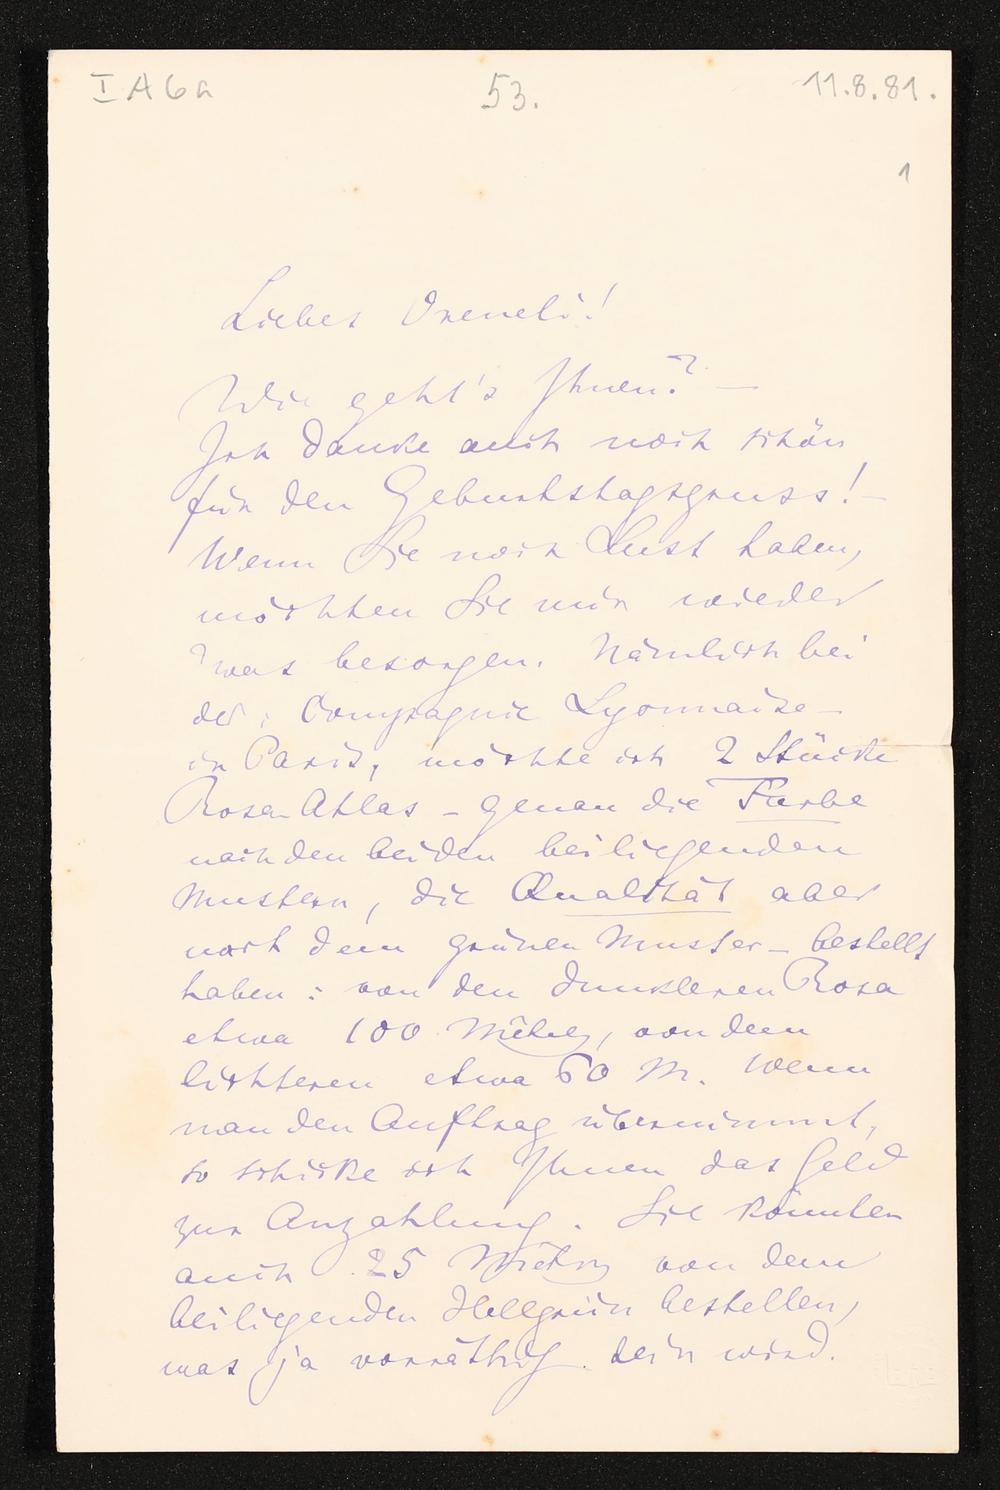 I A 6 a 53. 11.8.81.
1
Liebes Vreneli!
Wie geht's Ihnen? —
Ich danke auch noch schön
für den Geburtstagsgruss! —
Wenn Sie noch Lust haben,
möchten Sie mir wieder
'was besorgen. Nämlich bei
der: Compagnie Lyonnaise —
in Paris, möchte ich 2 Stücke
Rosa-Atlas — genau die Farbe
nach den beiden beiliegenden
Mustern, die Qualität aber
nach dem grünen Muster — bestellt
haben: von den dunkleren Rosa
etwa 100 Mètres, von dem
lichteren etwa 60 M. Wenn
man den Auftrag übernimmt,
so schicke ich Ihnen das Geld
zur Anzahlung. Sie könnten
auch 25 Mètres von dem
beiliegenden Hellgrün bestellen,
was ja vorräthig sein wird.